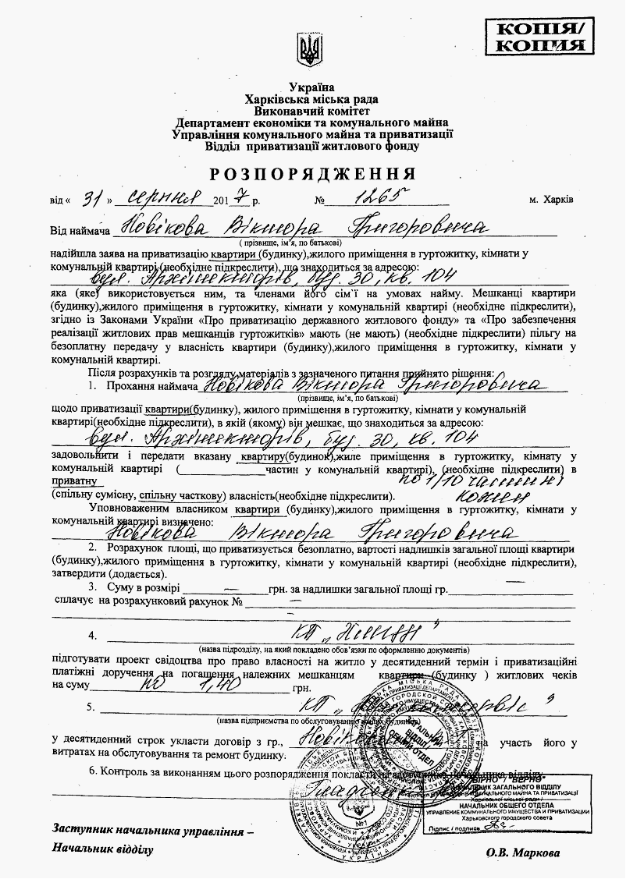 КОПІЯ/
КОПИЯ
Україна
Харківська міська рада
Виконавчий комітет
Департамент економіки та комунального майна
Управління комунального майна та приватизації
Відділ приватизації житлового фонду
РОЗПОРЯДЖЕННЯ
від « 31 » серпня 2017 р. № 1265 м. Харків
Від наймача Новікова Віктора Григоровича
( прізвище, ім'я, по батькові)
надійшла заява на приватизацію квартири (будинку),жилого приміщення в гуртожитку, кімнати у
комунальній квартирі (необхідне підкреслити), що знаходиться за адресою:
вул. Архітекторів, буд. 30, кв. 104
яка (яке) використовується ним, та членами його сім`ї на умовах найму. Мешканці квартири
(будинку),жилого приміщення в гуртожитку, кімнати у комунальній квартирі (необхідне підкреслити),
згідно із Законами України «Про приватизацію державного житлового фонду» та «Про забезпечення
реалізації житлових прав мешканців гуртожитків» мають (не мають) (необхідне підкреслити) пільгу на
безоплатну передачу у власність квартири (будинку),жилого приміщення в гуртожитку, кімнати у
комунальній квартирі.
Після розрахунків та розгляду матеріалів з зазначеного питання прийнято рішення:
1. Прохання наймача Новікова Віктора Григоровича
(прізвище, ім'я, по батькові)
щодо приватизації квартири(будинку), жилого приміщення в гуртожитку, кімнати у комунальній
квартирі(необхідне підкреслити), в якій (якому) він мешкає, що знаходиться за адресою:
вул. Архітекторів, буд. 30, кв. 104
задовольнити і передати вказану квартиру(будинок),жиле приміщення в гуртожитку, кімнату у
комунальній квартирі (____________частин у комунальній квартирі), (необхідне підкреслити) в
приватну по 1/10 частині
(спільну сумісну, спільну часткову) власність(необхідне підкреслити). кожен
Уповноваженим власником квартири (будинку),жилого приміщення в гуртожитку, кімнати у
комунальній квартирі визначено:
Новікова Віктора Григоровича
2. Розрахунок площі, що приватизується безоплатно, вартості надлишків загальної площі квартири
(будинку),жилого приміщення в гуртожитку, кімнати у комунальній квартирі (необхідне підкреслити),
затвердити (додається).
3. Суму в розмірі — грн. за надлишки загальної площі гр. —
сплачує на розрахунковий рахунок № —
4. КП „
(назва підрозділу, на який покладено обов'язки по оформленню документів)
підготувати проект свідоцтва про право власності на житло у десятиденний термін і приватизаційні
платіжні доручення на погашення належних мешканцям квартири (будинку ) житлових чеків
на суму по 1,40 грн.
5. КП „
(назва підприємства по обслуговуванню
у десятиденний строк укласти договір з гр., на участь його у
витратах на обслуговування та ремонт будинку.
6. Контроль за виконанням цього розпорядження покласти на начальника відділу
ВІРНО / ВЕРНО
НАЧАЛЬНИК ЗАГАЛЬНОГО ВІДДІЛУ
НАЧАЛЬНИК ОБЩЕГО ОТДЕЛА
УПРАВЛЕНИЕ КОММУНАЛЬНОГО ИМУЩЕСТВА И ПРИВАТИЗАЦИИ
Харьковского городского совета
Підпис / подпись
Заступник начальника управління –
Начальник відділу О.В. Маркова